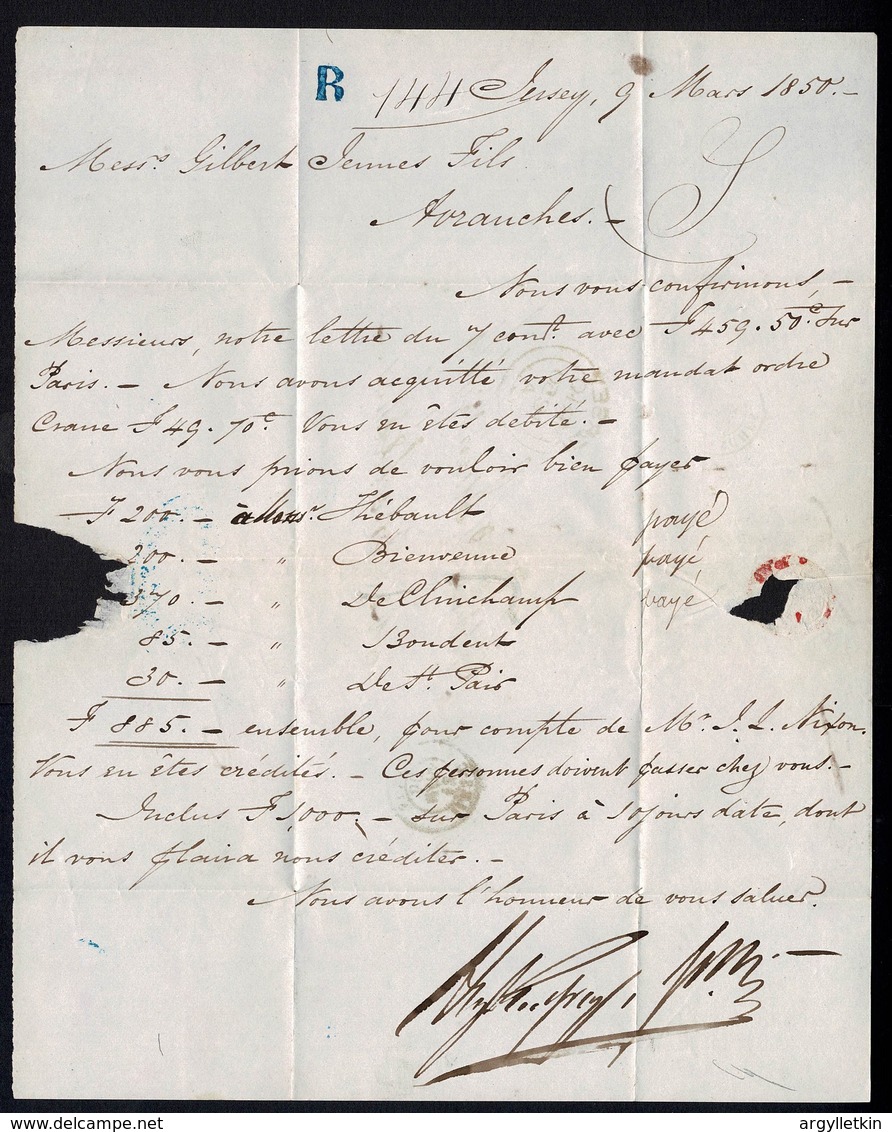 R
144 Jersey, 9 Mars 1850.-
Mess.rs Gilbert Jeunes Fils
Avranches.-
Nous vous confirmons,-
Messieurs, notre lettre du 7 cont. avec F 459.50c. sur
Paris.- Nous avons acquitté votre mandat ordre
Crane F 49.70c. Vous en êtes debité.-
Nous vous prions de vouloir bien payer
F 200.- à Hébault payé
200.- " Bienvenue payé
370.- " De Clinchamp payé
85.- " Boudent
30.- " De St. Pair
F 885.- ensemble, pour compte de Mr. J. L. Nixon.
Vous en êtes crédités.- Ces personnes doivent passer chez vous.-
Inclus F 1,000.- sur Paris à 10 jours date, dont
il vous plaira nous créditer.-
Nous avons l'honneur de vous saluer.
argylletkin